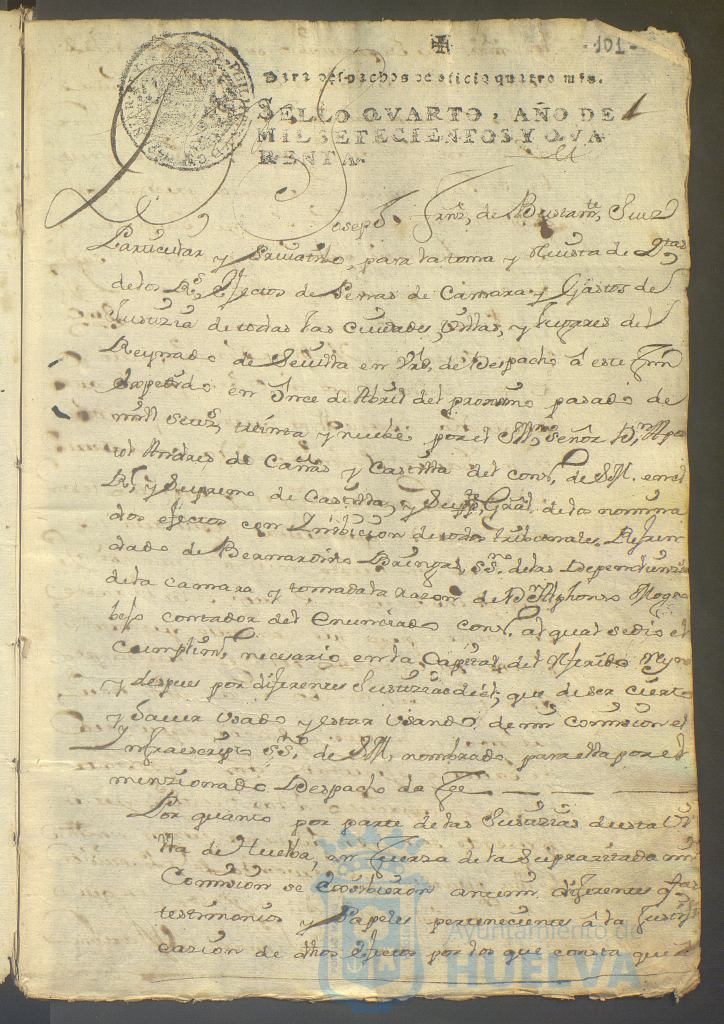 -101-
Para despachos de oficio quatro mrs.
SELLO QVARTO, AÑO DE
MIL SETECIENTOS Y QVA
RENTA.
D. Joseph Frnz, de Bustamte, Juez
Particular y Privatibo, para la toma y Revista de Qtas
de los Rs. Efectos de Penas de Camara y Gastos de
Justizia de todas las Ciudades, Villas, y Lugares del
Reynado de Sevilla en Vrd. de Despacho a este fin
expedido en Once de Abril del proximo pasado de
mill setezs treinta y nuebe por el Illmo Señor Dn. Apa
tol Andres de Cañas y Castilla del consº de S.M. en el
Rl. y Supremo de Castilla, y Supte Gral. de los nomina
dos efectos con Inibicion de todos tribunales. Refren
dado de Bernardino ss.no de las Dependienzias
de la Camara y tomada la razon de Dn. Alphonso Mogro
bejo contador del Enunciado consº. al qual se dio el
Cumplimto necesario en la Capital del Referido Reyno
y despues por diferentes Justizias de el; que de ser cierto
y haver usado y estar usando de mi Comision el
Infraescripto ss.no de S.M, nombrado para ella por el
menzionado Despacho da Fee
Por quanto por parte de las Justizias de esta Vi
lla de Huelba, en fuerza de la supracitada mi
Comision se exsibieron ante mi diferentes qtas
testimonios y Papeles pertenecientes a la Justifi
cazion de dhos efectos por los que consta que
Ayuntamiento de
HUELVA